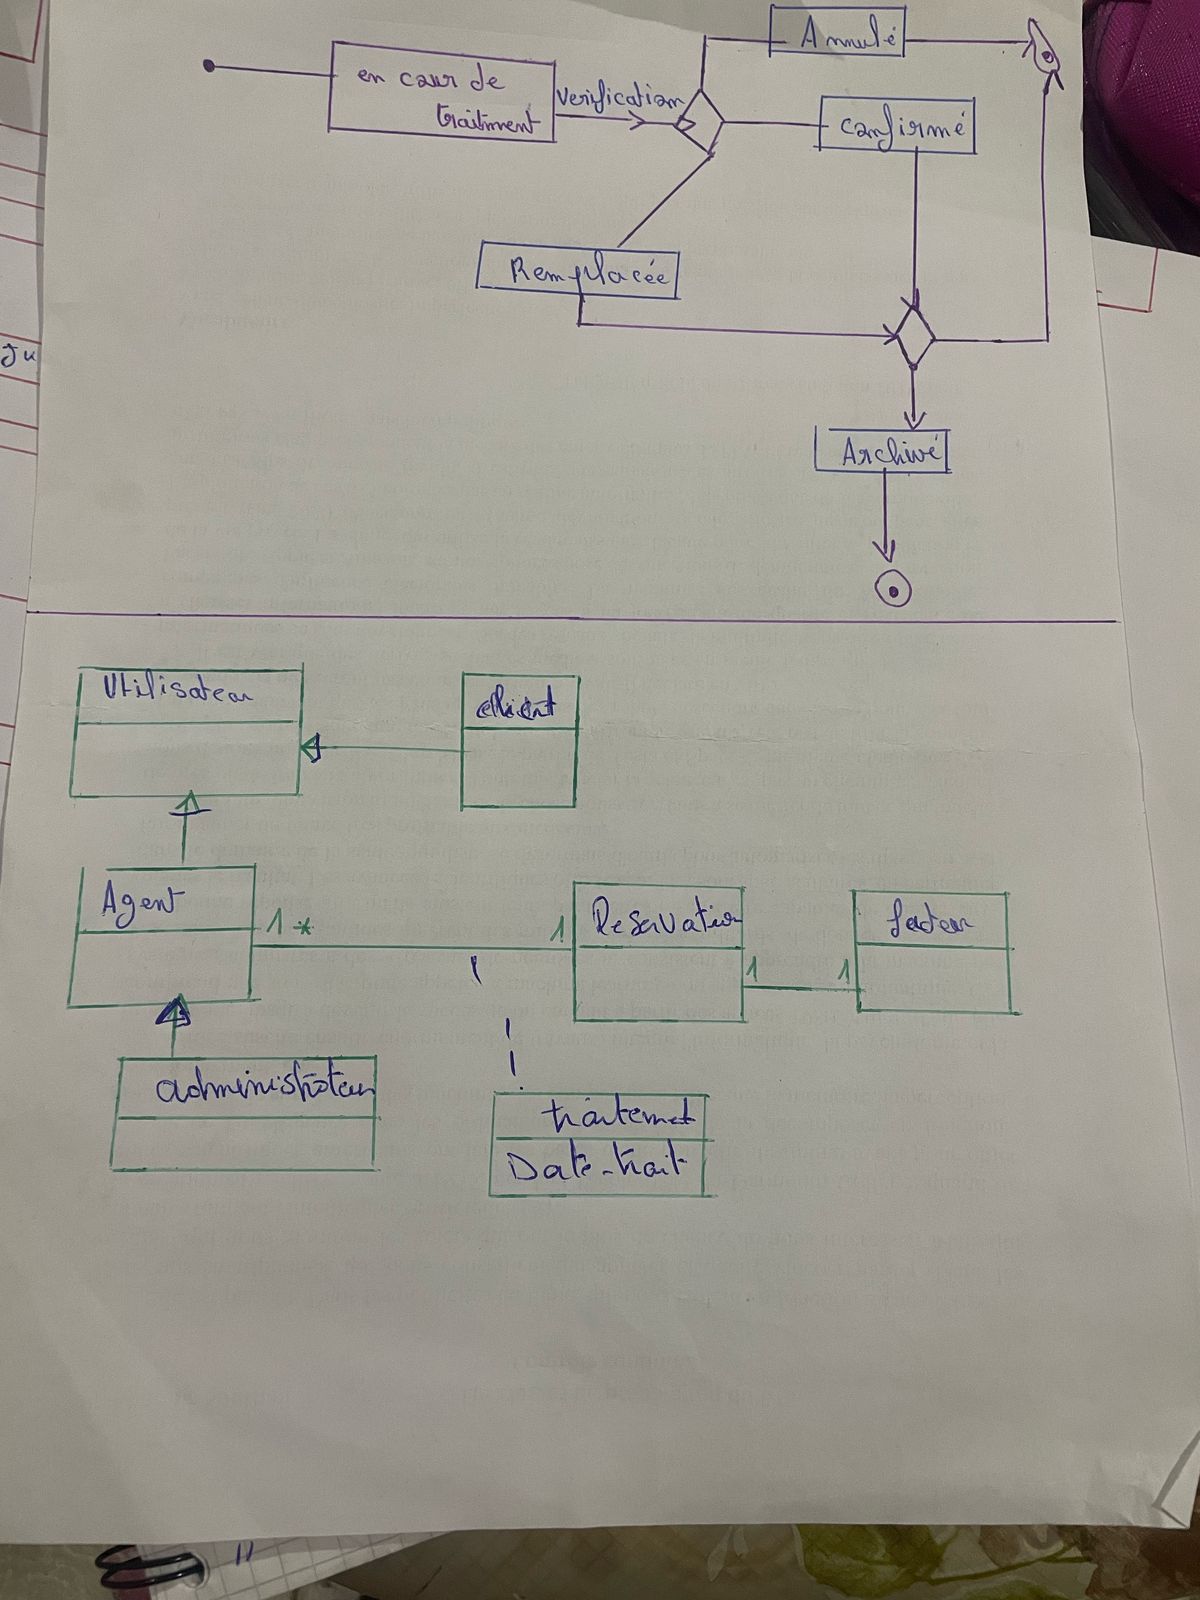 Annulé
en cour de
traitment
verification
confirmé
Remplacée
Archivé
Utilisateur
client
Agent
1 *
1
Reservation
1
1
facteur
administrateur
traitement
Date-trait